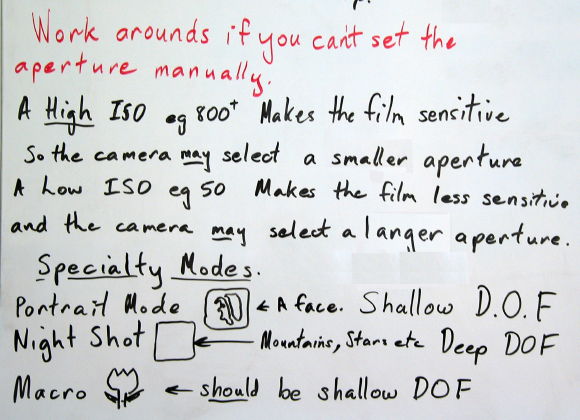 Work arounds if you can't set the
aperture manually.
A High ISO eg 800+ Makes the film sensitive
So the camera may select a smaller aperture
A Low ISO eg 50 Makes the film less sensitive
and the camera may select a larger aperture.
Specialty Modes.
Portrait Mode ← A face. Shallow D.O.F
Night Shot ← Mountains, Stars etc Deep DOF
Macro ← should be shallow DOF